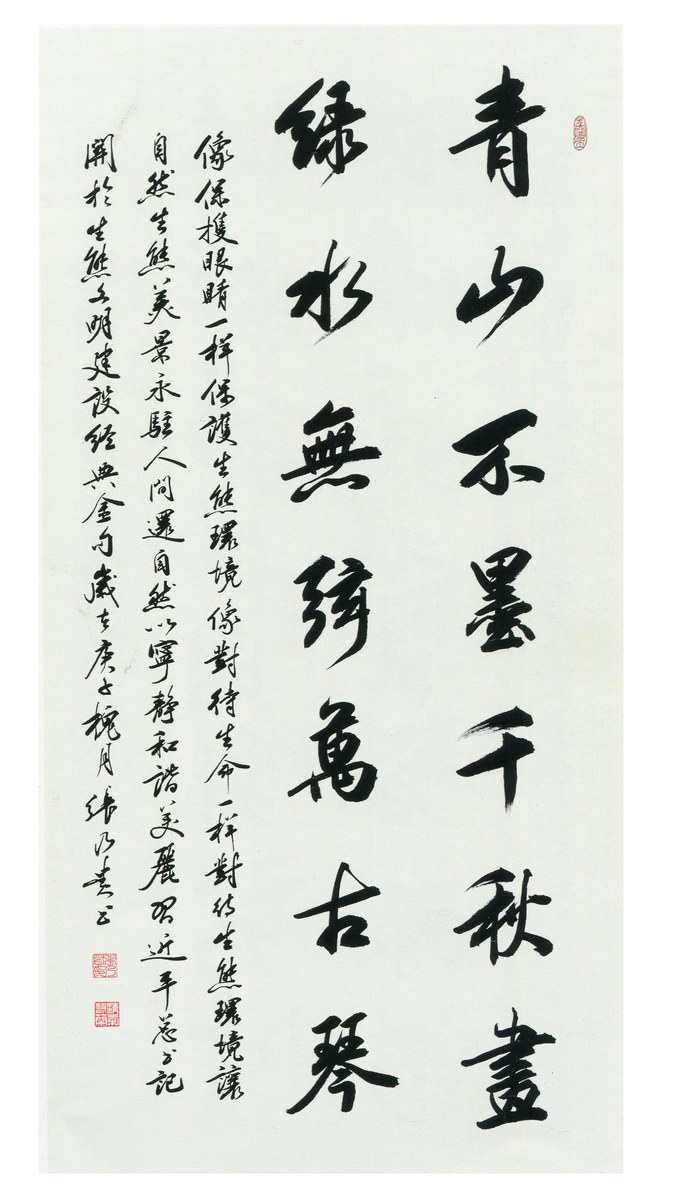 青山不墨千秋畫
緑水無弦萬古琴
像保護眼睛一样保護生態環境像對待生命一样對待生態環境讓
自然生態美景永駐人間還自然以寧靜和諧美麗習近平总书記
關於生態文明建設經典金句歲在庚子槐月張乃貴书